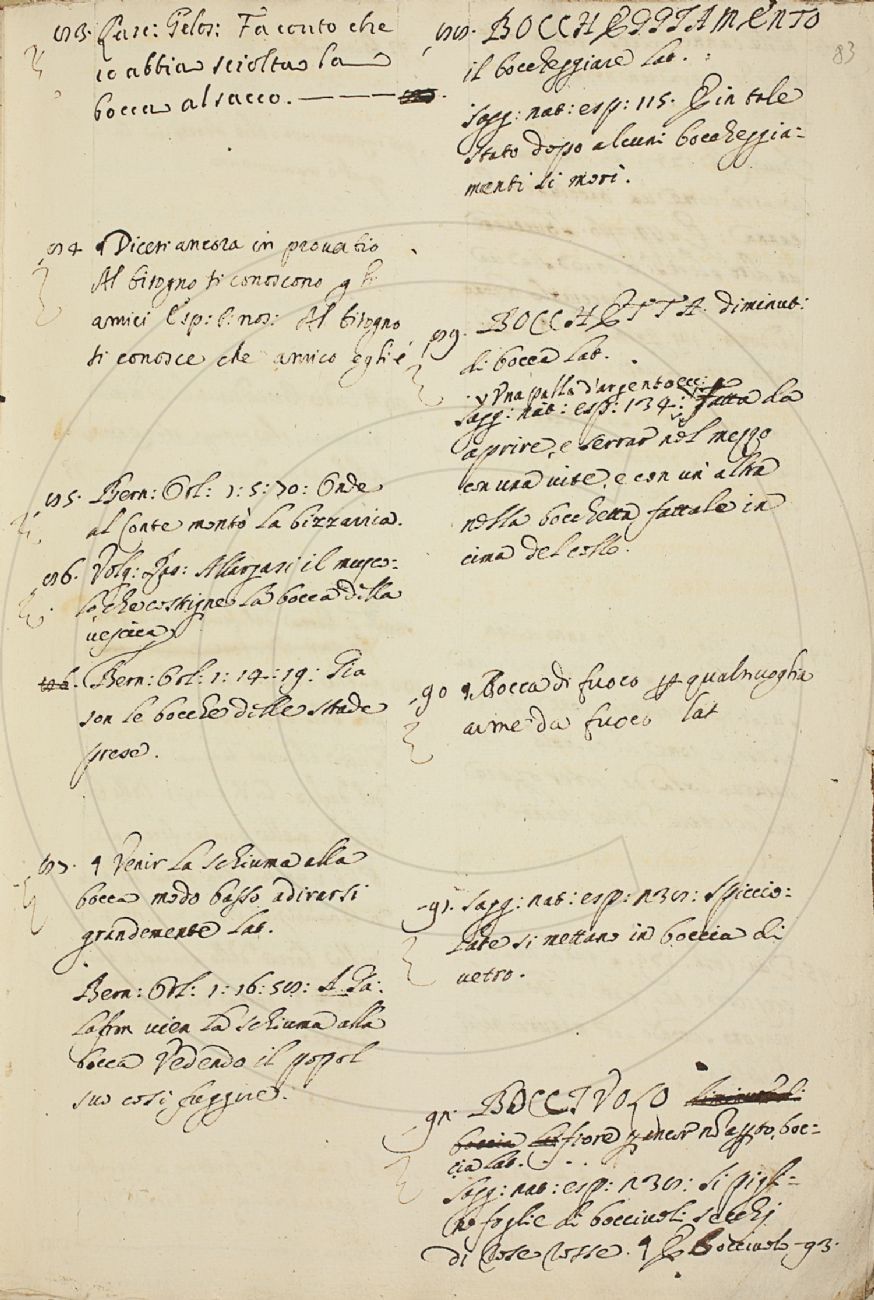 83
83. Lasc: Gelos: Fa conto che
io abbia sciolta la
bocca al sacco.
84 ¶ Dicesi ancora in proverbio
Al bisogno si conoscono gli
amici Esp: P: nos: Al bisogno
si conosce che amico egli è
85. Bern: Orl: 1: 5: 70: Onde
al Conte montò la bizzarria.
86. Volg: Ras: Allargasi il musco:
lo che costrigne la bocca della
vescica
86. Bern: Orl: 1: 14: 19: Gia
son le bocche delle strade
prese.
87. ¶ Venir la schiuma alla
bocca modo basso adirarsi
grandemente Lat.
Bern: Orl: 1: 16: 58: A Ga:
lafron vien la schiuma alla
bocca Vedendo il popol
suo così fuggire.
88. BOCCHEGGIAMENTO
il boccheggiare Lat.
Sagg: nat: esp: 115. E in tale
stato dopo alcuni boccheggia=
menti si morì.
89. BOCCHETTA. diminut:
di bocca Lat.
Una palla d'argento ecc:
Sagg: nat: esp: 134: fatta da
aprire, e serrar nel mezzo
con una vite, e con un altra
nella bocchetta fattale in
cima del collo.
90 ¶ Bocca di fuoco p qualsivoglia
arme da fuoco Lat
91. Sagg: nat: esp: 238: Spiccio:
late si mettano in boccia di
vetro.
92. BOCCIUOLO diminut: di
boccia Lat fiore non aperto, boc=
cia Lat.
Sagg: nat: esp: 238: Si pigli=
no foglie di bocciuoli secchi
di Rose rosse. ¶ E Bocciuolo 93.